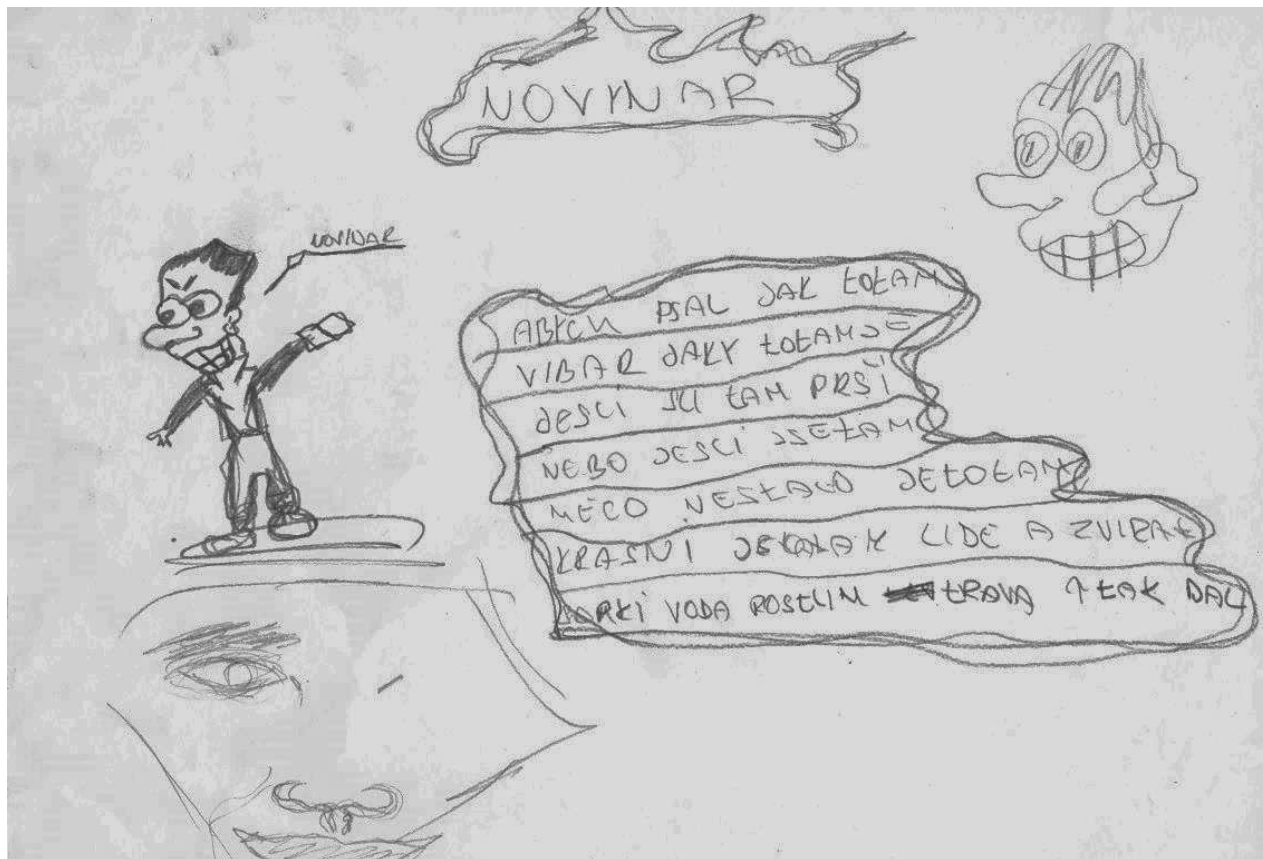 NOVINAR
NOVINAR
ABYCH PSAL JAK TOTAM
VIBAR JAKY TOTAMJE
JESLI SU TAM PRŠI
NEBO JESLI JSETAM
NĚCO NESTALO JETOTAM
KRASNI LIDE A ZVIRAT
VODA ROSTLIM TRAVA TAK DAL